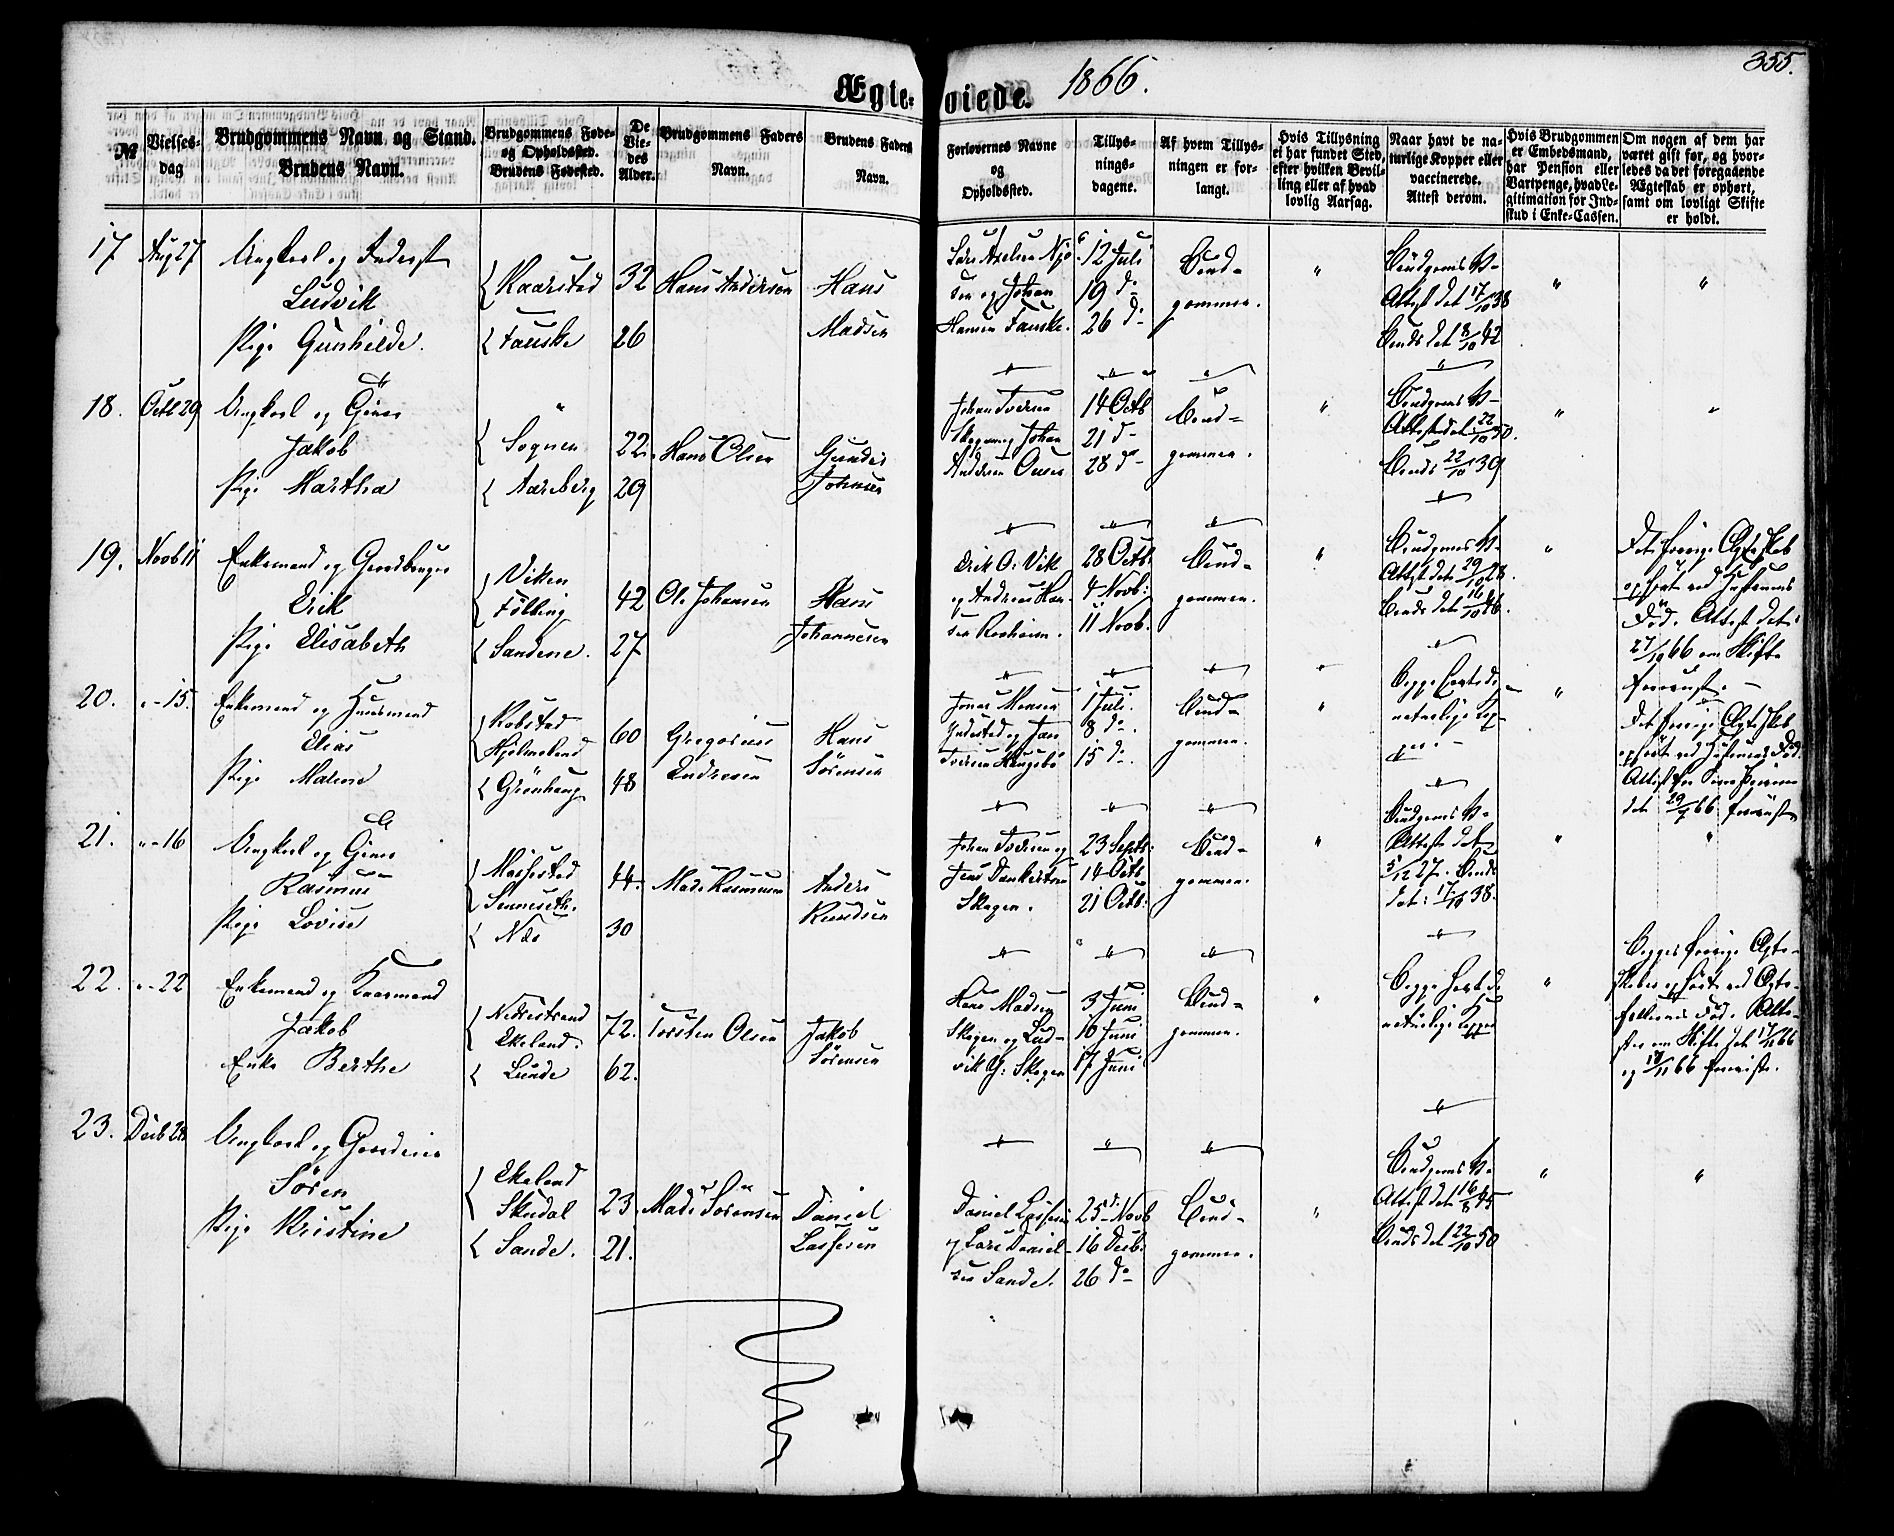 355.
Ægte-viede. 1866.
№
Vielses-dag
Brudgommens Navn og Stand.
Brudens Navn.
Brudgommens Føde-
og Opholdssted.
Brudens Fødested.
De
Vie-
des
Alder.
Brudgommens Faders
Navn.
Brudens Faders
Navn.
Forlovernes Navne
og
Opholdssted.
Tillys-
nings-
dagene.
Af hvem Tillys-
ningen er for-
langt.
Hvis Tillysning
ei har fundet Sted,
efter hvilken Bevil-
ling eller af hvad
lovlig Aarsag.
Naar havt de na-
turlige Kopper eller
vaccinerede.
Attest derom.
Hvis Brudgommen
er Embedsmand,
har Pension eller
Vartpenge, hvad Le-
gitimation for Ind-
skud i Enke-Cassen.
Om nogen af dem har
været gift før, og hvor-
ledes da det foregaaende
Ægteskab er ophørt,
samt om lovligt Skifte
er holdt.
17 Aug 27 Ungkarl og
Ludvik
Pige Gunhilde.
Kaarstad 32 Hans Andersen Hans
Fauske 26 Madsen
og Johan
Hansen Fauske.
12 Juli
19 do
26 do
Brud-
gommen.
Brudgoms V-
Attest dat 17/10 38
Bruds dat 8/10 42
18. Octb 29 Ungkarl og
Jakob
Pige Martha
Sognen 22 Hans Olsen
Aarberg 29 Johnsen
Johan Iversen
Skagen og Johan
Andersen
14 Octb
21 do
28 do
Brud-
gommen.
Brudgoms V-
Attest dat 22/10 50.
Bruds 22/10 39
19. Novb 11 Enkemand og Gaardbruger
Erik
Pige Elisabeth
Viken
Følling 42 Ole Johansen Hans
Sandene. 27 Johannesen
Erik O. Vik
og Andreas Han-
sen
28 Octb:
4 Novb:
11 Novb.
Brud-
gommen.
Brudgoms V-
Attest dat 29/10 28.
Bruds dat 16/10 46.
Dets forrige Ægteskab
ophørt ved Hustruens
Død. Attest dat:
27/10 66 om Skifte
forevist.
20. " - 15. Enkemand og Huusmand
Elias
Pige Malene
Robstad
Hjelmeland 60 Gregorius Hans
Grønhaug 48 Andresen Sørensen
Jonas Monsen
og Jan
Iversen Haugsbø
1 Juli.
8 do.
15 do.
Brud-
gommen.
Begge havt de
naturlige Kop-
per.
Det forrige Ægteskab
ophørt ved Hustruens Død.
dat 29/ 66 forevist
21. " - 16 Ungkarl og
Rasmus
Pige Lovise
44. Mads Rasmussen Anders
Næs 30 Knudsen
Johan Iversen og
Jens Dankertsen
Skagen.
23 Septb:
14 Octb
21 Octb:
Brud-
gommen.
Brudgoms V-
Attest dat
5/12 27. Bruds
dat: 17/10 38.
22. " - 22 Enkemand og Kaarmand
Jakob
Enke Berthe
Nedrestrand
Ekeland. 72. Torsten Olsen Jakob
Lunde 62. Sørensen
Hans Madsen
Skagen og Lud-
vik G: Skagen
3 Juni
10 Juni
17 Juni
Brud-
gommen.
Begge havt de
naturlige Kopper
Begges forrige Ægte-
skaber ophørt ved Ægte-
fællernes Død. Atte-
ster om Skifte dat 17/11 66
og 66 forevist.
23. Decb 26 Ungkarl og
Søren
Pige Kristine
Ekeland
Skudal 23 Mads Sørensen Daniel
Sande. 21. Lassesen
Daniel Lassesen
og Lars Daniel-
sen Sande.
25 Novb
16 Decb:
26 do
Brud-
gommen.
Brudgoms V-
Attest dat 16/8 45
Bruds dat 22/10 50